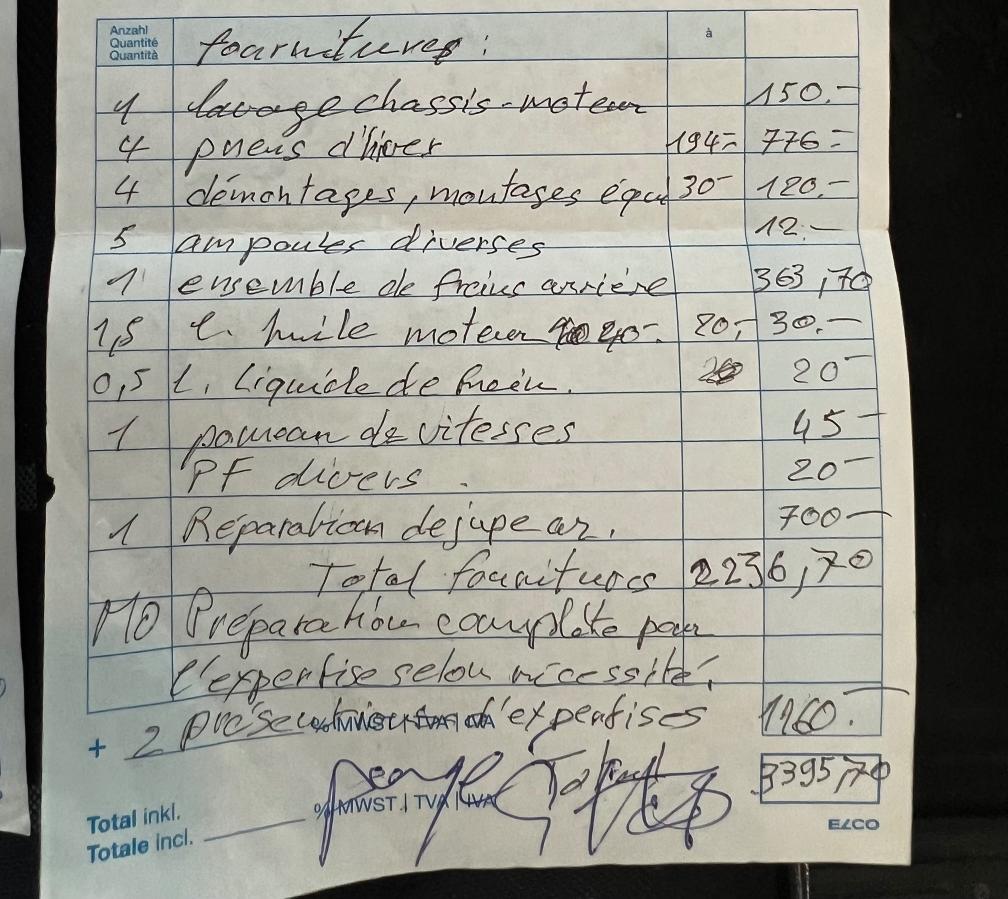 Anzahl
Quantité
Quantità
fournitures :
à
1 lavage chassis-moteur 150.-
4 pneus d'hiver 194.- 776.-
4 démontages, montages équi 30- 120.-
5 ampoules diverses 12.-
1 ensemble de freins arrière 363,70
1,5 l. huile moteur 20,- 30.-
0,5 l. liquide de frein. 20-
1 pomeau de vitesses 45-
PF divers . 20-
1 Réparation de jupe ar. 700-
Total fournitures 2236,70
MO Préparation complète pour
l'expertise selon nécessité.
+ 2 d'expertises 1160.-
% MWST | TVA | IVA
Total 3395,70
Total inkl.
Totale incl. % MWST | TVA | IVA
ELCO